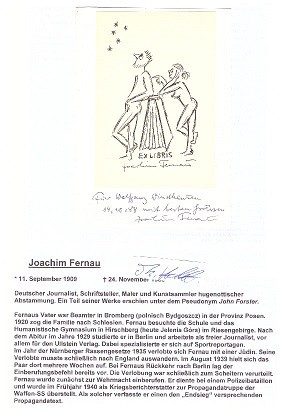 EX LIBRIS
Joachim Fernau
Für Wolfgang Windhausen
mit besten Grüssen
Joachim Fernau
Joachim Fernau
* 11. September 1909 † 24. November
Deutscher Journalist, Schriftsteller, Maler und Kunstsammler hugenottischer
Abstammung. Ein Teil seiner Werke erschien unter dem Pseudonym John Forster.
Fernaus Vater war Beamter in Bromberg (polnisch Bydgoszcz) in der Provinz Posen.
1920 zog die Familie nach Schlesien. Fernau besuchte die Schule und das
Humanistische Gymnasium in Hirschberg (heute Jelenia Góra) im Riesengebirge. Nach
dem Abitur im Jahre 1929 studierte er in Berlin und arbeitete als freier Journalist, vor
allem für den Ullstein Verlag. Dabei spezialisierte er sich auf Sportreportagen.
Im Jahr der Nürnberger Rassengesetze 1935 verlobte sich Fernau mit einer Jüdin. Seine
Verlobte musste schließlich nach England auswandern. Im August 1939 hielt sich das
Paar dort mehrere Wochen auf. Bei Fernaus Rückkehr nach Berlin lag der
Einberufungsbefehl bereits vor. Die Verlobung war schließlich zum Scheitern verurteilt.
Fernau wurde zunächst zur Wehrmacht einberufen. Er diente bei einem Polizeibataillon
und wurde im Frühjahr 1940 als Kriegsberichterstatter zur Propagandatruppe der
Waffen-SS überstellt. Als solcher verfasste er einen den „Endsieg“ versprechenden
Propagandatext.